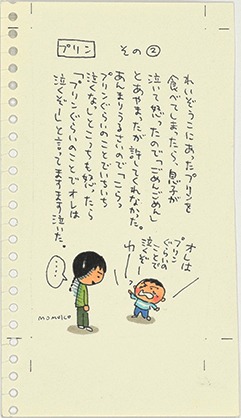 プリン その②
れいぞうこにあったプリンを
食べてしまったら、息子が
泣いて怒ったので「ごめんごめん」
とあやまたが許してくれなかった。
あんまりうるさいので「こらっ
プリンぐらいのことでいちいち
泣くな」とこっちも怒ったら
「プリンぐらいのことでオレは
泣くぞー」と言ってますます泣いた。
オレは
プリン
ぐらいの
ことで
泣くぞー
わーっ
…
MOMOKO